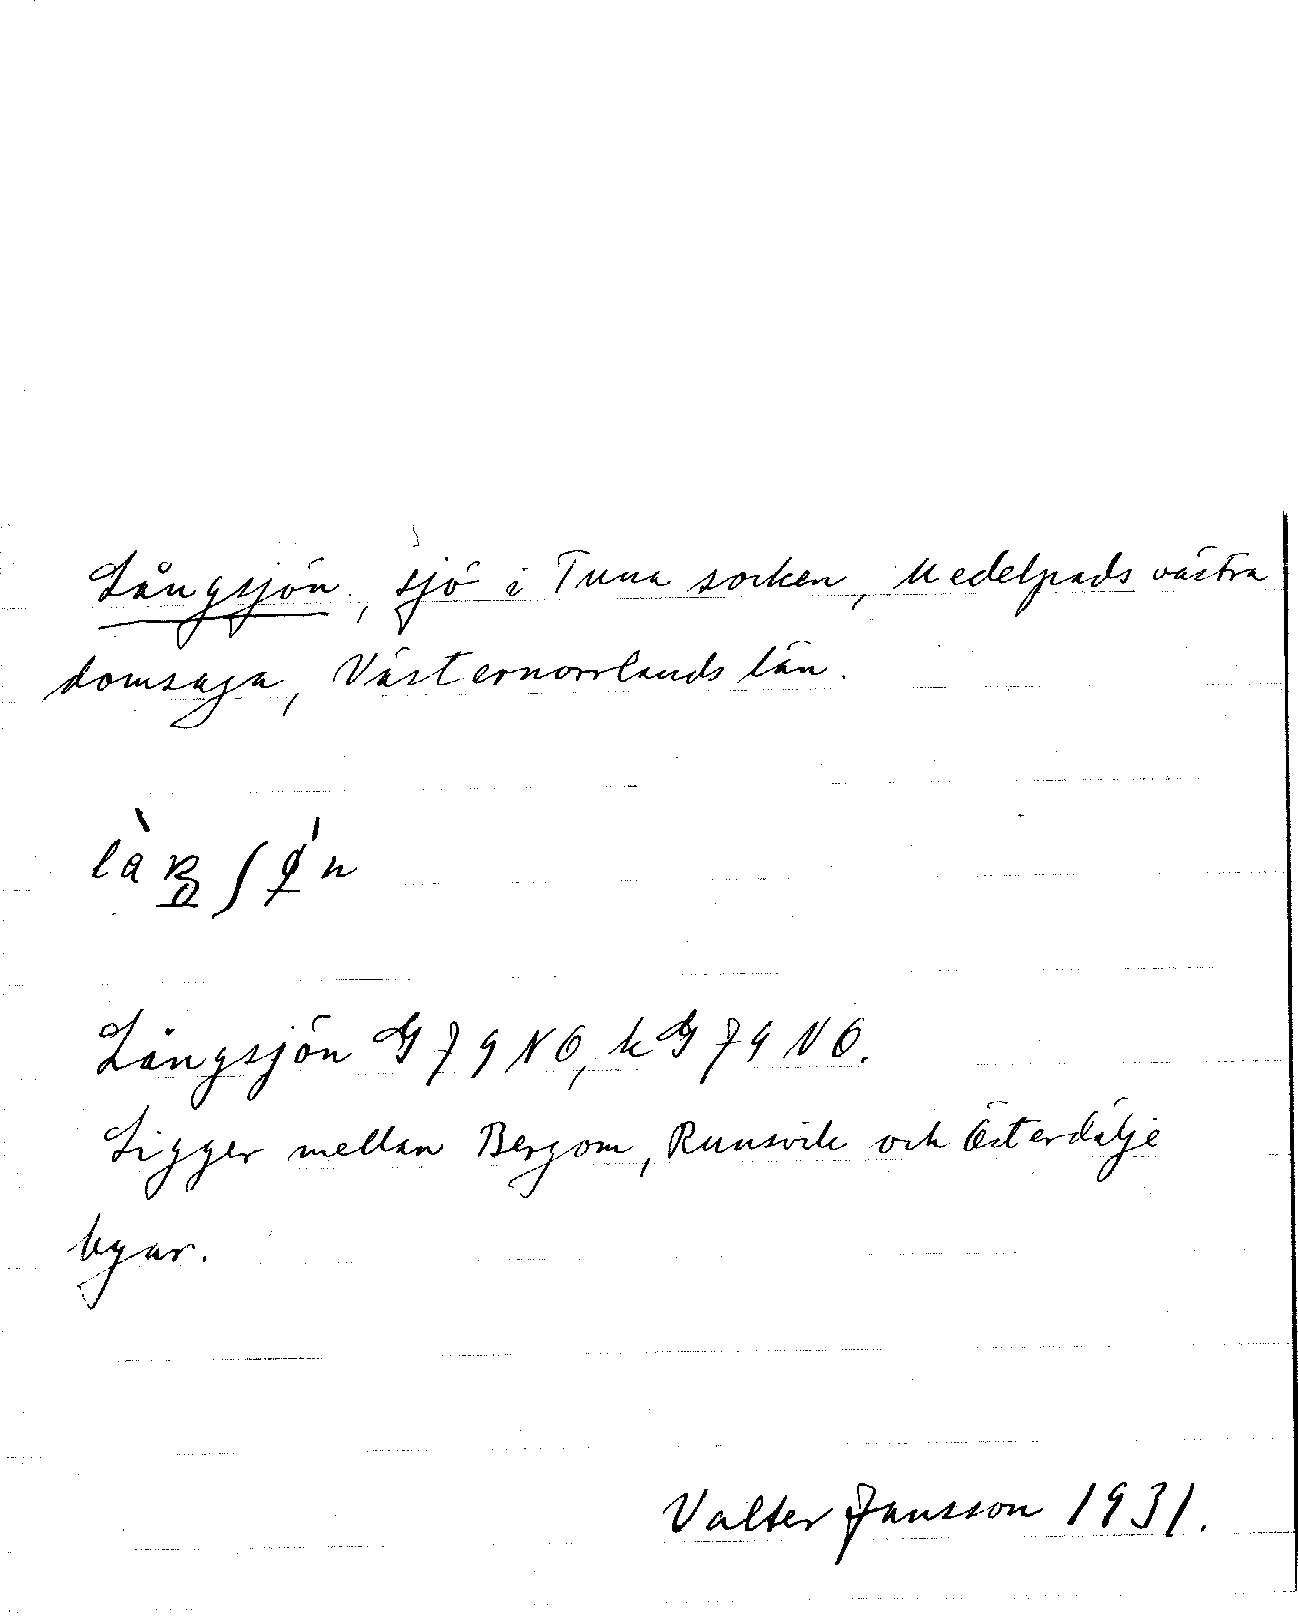 Långsjön, sjö i Tuna socken, Medelpads västra
domsaga, Västernorrlands län.
Långsjön G 79 NO, k G 79 NO.
Ligger mellan Bergom, Runsvik och Österdälje
byar.
Valter Jansson 1931.